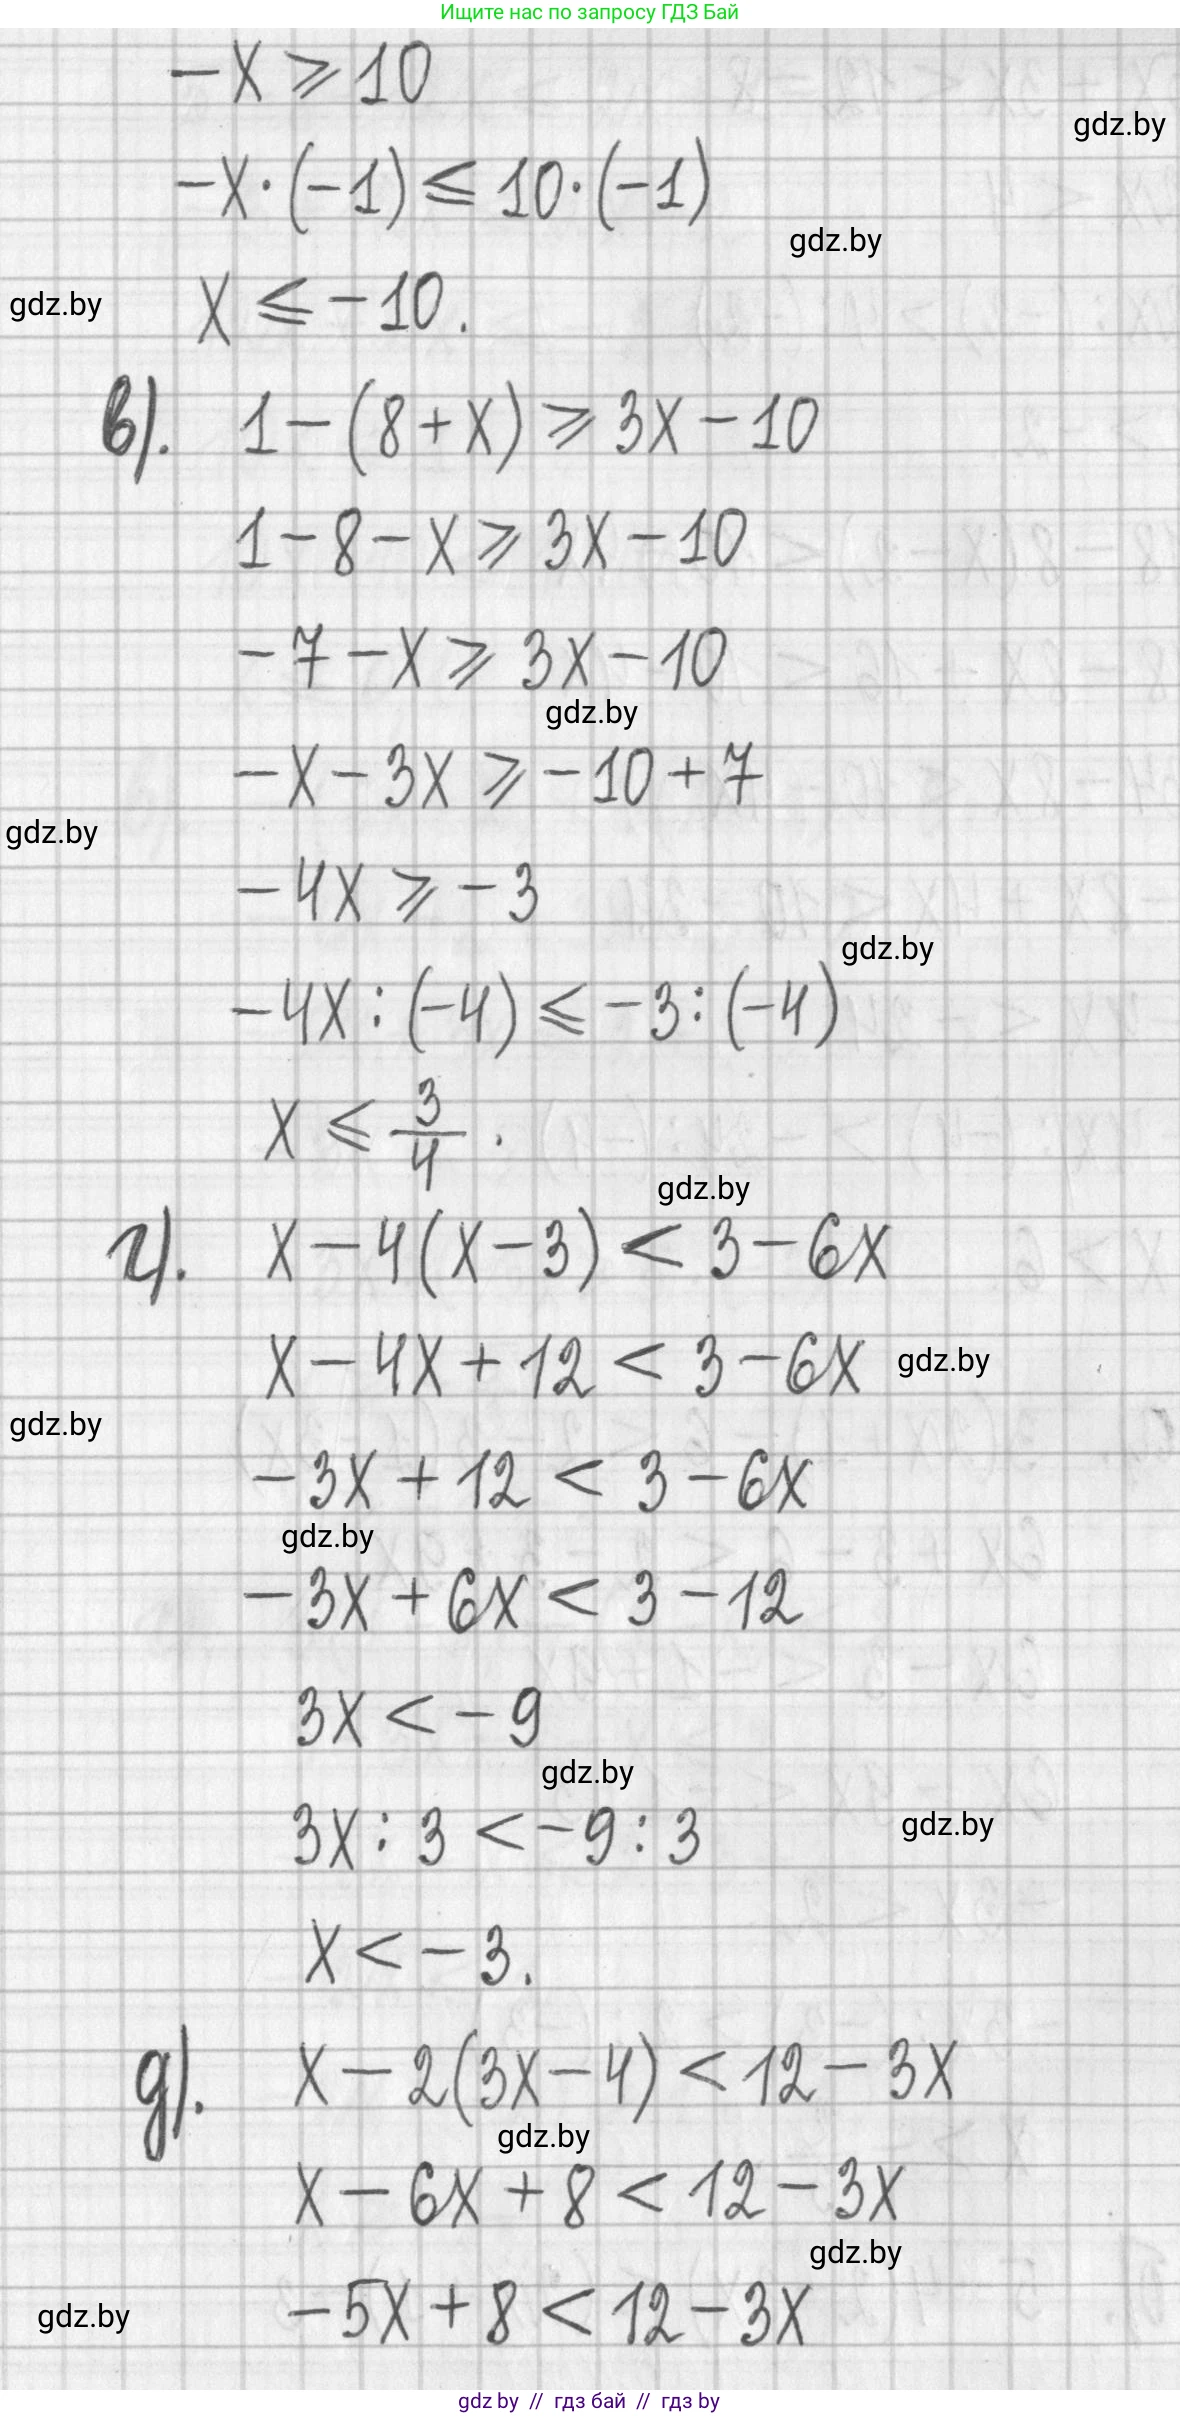 Ищите нас по запросу ГДЗ Бай
-x ⩾ 10
gdz.by
-x·(-1) ⩽ 10·(-1)
gdz.by
gdz.by
x ⩽ -10.
в). 1-(8+x) ⩾ 3x-10
1-8-x ⩾ 3x-10
-7-x ⩾ 3x-10
gdz.by
-x-3x ⩾ -10+7
gdz.by
-4x ⩾ -3
gdz.by
-4x:(-4) ⩽ -3:(-4)
x ⩽ 3/4.
gdz.by
г). x-4(x-3) < 3-6x
x-4x+12 < 3-6x
gdz.by
gdz.by
-3x+12 < 3-6x
gdz.by
-3x+6x < 3-12
3x < -9
gdz.by
gdz.by
3x:3 < -9:3
x < -3.
д). x-2(3x-4) < 12-3x
gdz.by
x-6x+8 < 12-3x
gdz.by
gdz.by
-5x+8 < 12-3x
gdz by // гдз бай // гдз by